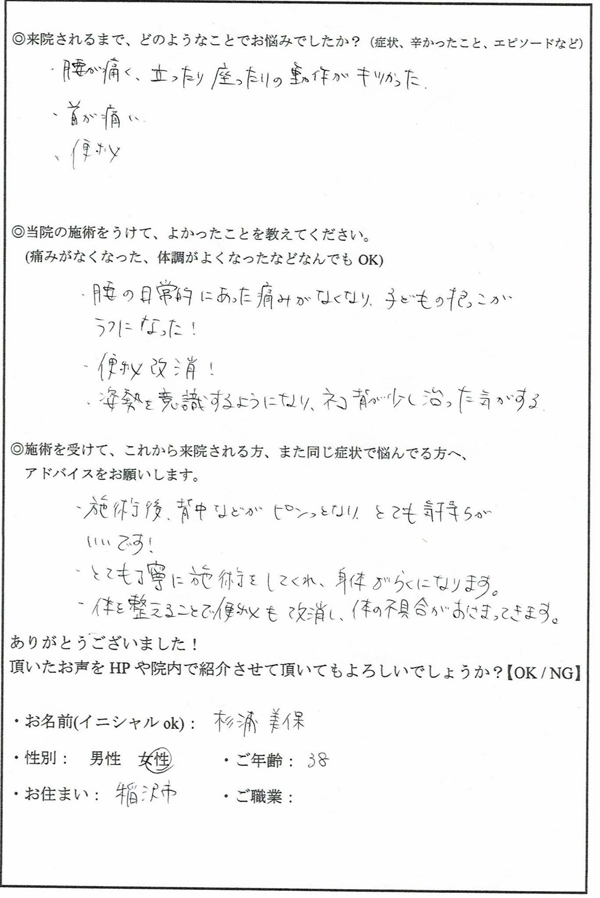 ◎来院されるまで、どのようなことでお悩みでしたか？（症状、辛かったこと、エピソードなど）
・腰が痛く、立ったり座ったりの動作がキツかった.
・首が痛い.
、便秘
◎当院の施術をうけて、よかったことを教えてください。
(痛みがなくなった、体調がよくなったなどなんでも OK)
・腰の日常的にあった痛みがなくなり、子どもの抱っこが
ラクになった！
・便秘改消！
・姿勢を意識するようになり、ネコ背が少し治った気がする
◎施術を受けて、これから来院される方、また同じ症状で悩んでる方へ、
アドバイスをお願いします。
・施術後、背中などがピンっとなり、とても気持ちが
いいです！
・とても丁寧に施術をしてくれ、身体がらくになります。
・体を整えることで便秘も改消し、体の不具合がおさまってきます。
ありがとうございました！
頂いたお声を HP や院内で紹介させて頂いてもよろしいでしょうか？【OK / NG】
・お名前(イニシャル ok)： 杉浦 美保
・性別： 男性 女性 ・ご年齢： 38
・お住まい： 稲沢市 ・ご職業：